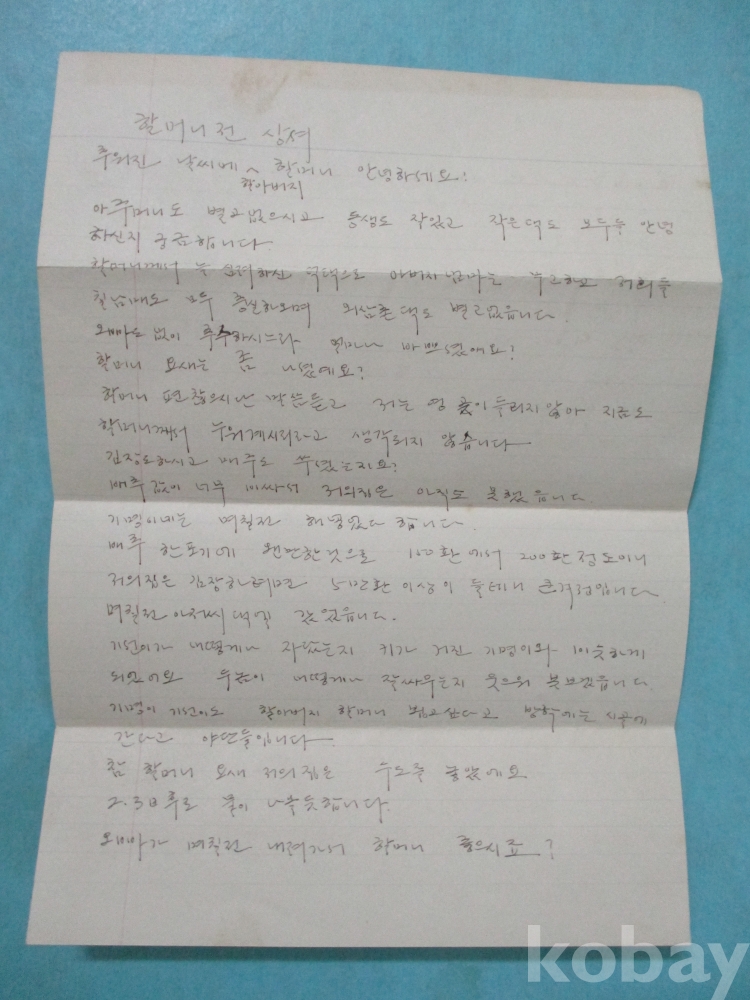 할머니전 상셔
추워진 날씨에 할아버지 할머니 안녕하세요!
아주머니도 별고없으시고 동생도 잘있고 작은댁도 모두들 안녕
하신지 궁금합니다.
할머니께서 늘 염려하신 덕택으로 아버지 엄마는 무고하고 저희들
칠남매도 모두 충실하오며 외삼촌댁도 별고없읍니다.
오빠도 없이 추수하시느라 얼마나 바쁘셨애요!
할머니 요새는 좀 나셨예요?
할머니 편찮으시단 말씀듣고 저는 영 곧이들리지않아 지금도
할머니께서 누워계시리라고 생각되지 않습니다
김장도하시고 메주도 쑤셨는지요?
배추값이 너무 비싸서 저의집은 아직도 못했읍니다.
기명이네는 며칠전 해넣었다 합니다.
배추 한포기에 왠만한것으로 150환에서 200환정도이니
저의집은 김장하려면 5만환 이상이 들테니 큰걱정입니다.
며칠전 아저씨댁엘 갔었읍니다.
기선이가 어떻게나 자랐는지 키가 거진 기명이와 비슷하게
되었어요 두놈이 어떻게나 잘싸우는지 웃으워 못보겠읍니다
기명이 기선이도 할아버지 할머니 뵙고싶다고 방학에는 시골에
간다고 야단들입니다.
참 할머니 요새 저의집은 수도를 놓았예요
2.3日후로 물이 나올듯합니다.
오빠가 며칠전 내려가서 할머니 좋으시죠?
kobay